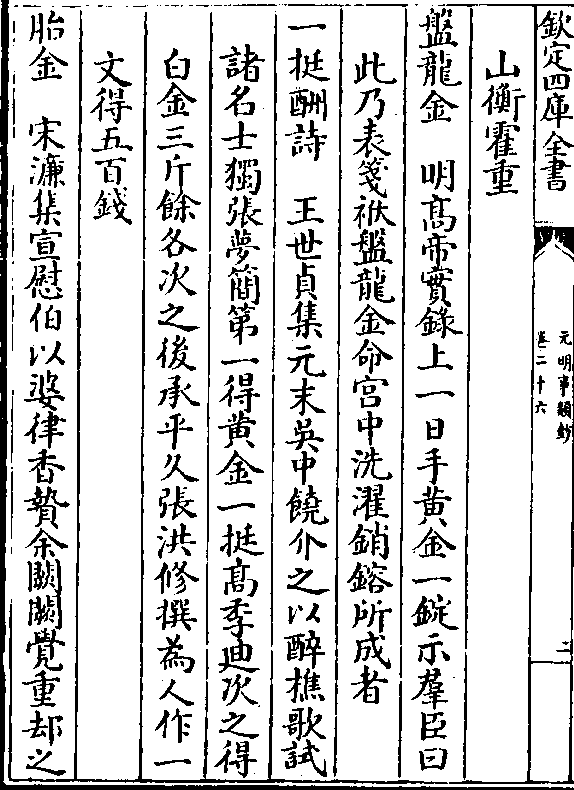 欽定四庫全書
元明事類鈔
卷二十六
二
山衡霍重
盤龍金　明髙帝實錄上一日手黄金一錠示羣臣曰
此乃表箋袱盤龍金命宫中洗濯銷鎔所成者
一挺酬詩　王世貞集元末吳中饒介之以醉樵歌試
諸名士獨張夢簡第一得黄金一挺髙季迪次之得
白金三斤餘各次之後承平久張洪修撰為人作一
文得五百錢
胎金　宋濂集宣慰伯以婆律香贄余闕闕覺重却之